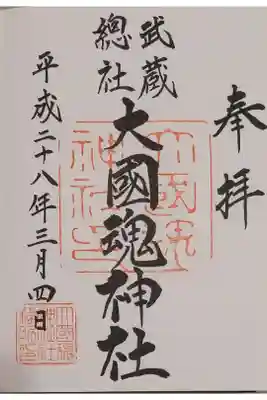 奉拝
武蔵
總社
大國魂神社
平成二十八年三月四日